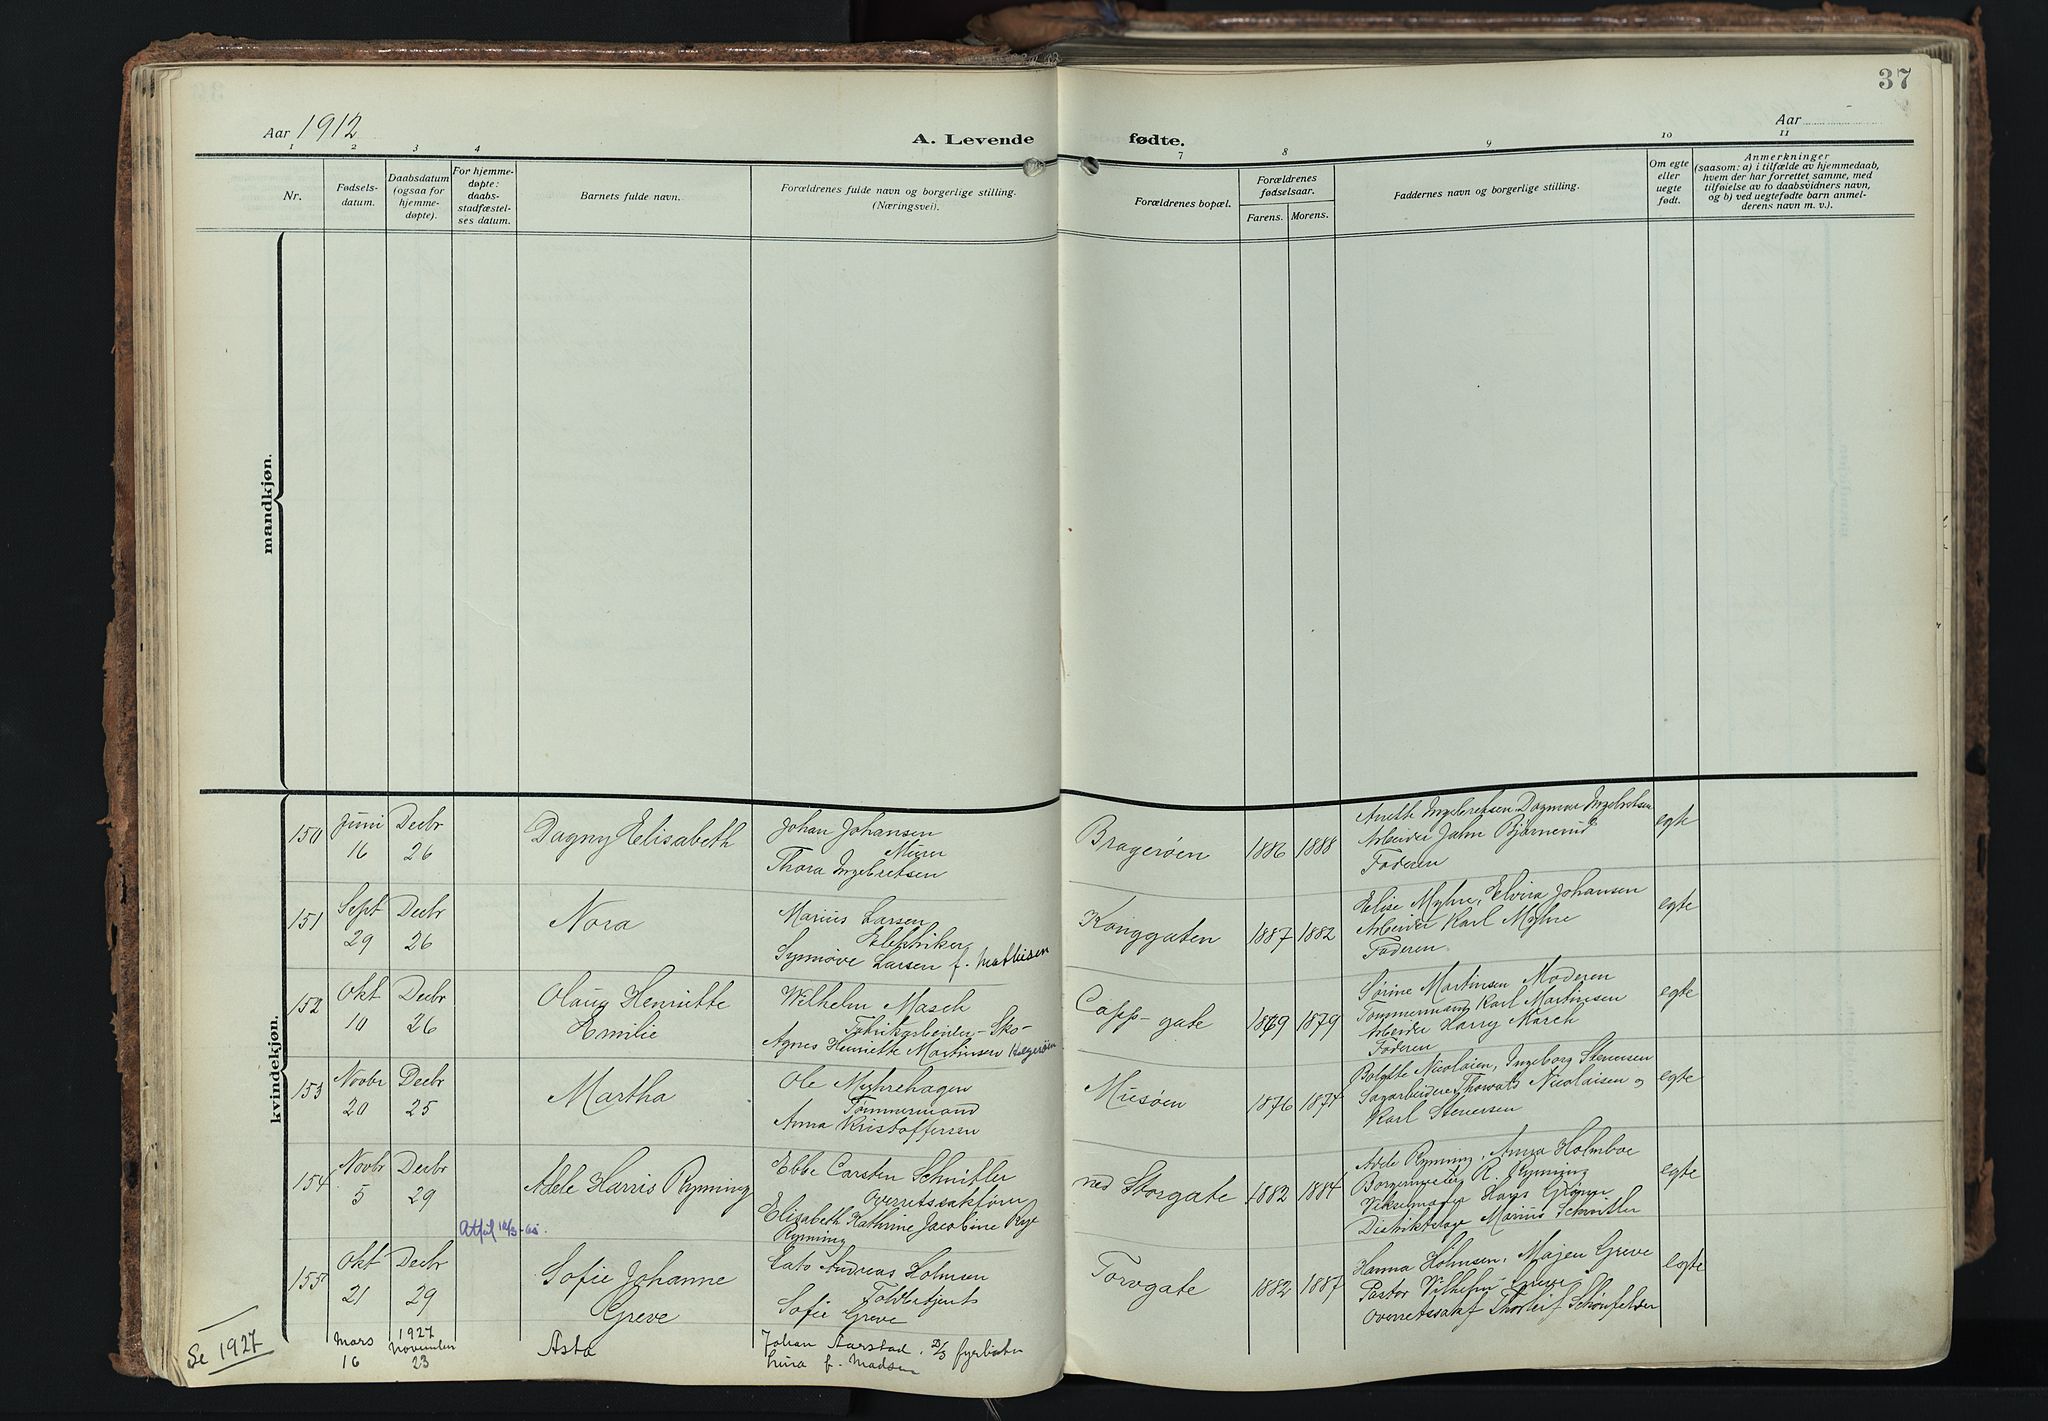 37
Aar 1912
A. Levende fødte.
Aar
1 2 3 4 7 8 9 10 11
Nr.
Fødsels-
datum.
Daabsdatum
(ogsaa for
hjemme-
døpte).
For hjemme-
døpte:
daabs-
stadfæstel-
ses datum.
Barnets fulde navn.
Forældrenes fulde navn og borgerlige stilling.
(Næringsvei).
Forældrenes bopæl.
Forældrenes
fødselsaar.
Farens. Morens.
Faddernes navn og borgerlige stilling.
Om egte
eller
uegte
født.
Anmerkninger
(saasom: a) i tilfælde av hjemmedaab,
hvem der har forrettet samme, med
tilføielse av to daabsvidners navn,
og b) ved uegtefødte barn anmel-
derens navn m. v.).
mandkjøn.
kvindekjøn.
150
Juni
16
Decbr
26
Dagny Elisabeth
Johan Johansen
Murer
Thora Ingebretsen
Bragerøen
1886 1888
Aneth Ingebretsen Dagmar Ingebretsen
Arbeider John Bjørnerud
Faderen
egte
151
Sept
29
Decbr
26
Nora
Marius Larsen
Elektriker
Synnøve Larsen f. Mathisen
Konggaten
1887 1882
Elise Myhre, Elvira Johansen
Arbeider Karl Myhre
Faderen
egte
152
Okt
10
Decbr
26
Olaug Henriette
Emilie
Wilhelm Masch
Fabrikarbeider - Sko-
Agnes Henriette Martinsen
Capp-gate
1879 1879
Sørine Martinsen Moderen
Tømmermand Karl Martinsen
Arbeider Harry March
Faderen
egte
153
Novbr
20
Decbr
25
Martha
Ole Myhrehagen
Tømmermand
Anna Kristoffersen
Musøen
1876 1874
Bolgitte Nicolaisen, Ingeborg Stenersen
Sagarbeider Thorvald Nicolaisen og
Karl Stenersen
egte
154
Novbr
5
Decbr
29
Adele Harris Rynning
Ebbe Carsten Schnitler
Overretssakfører
Elisabeth Kathrine Jacobine
Rynning
ned Storgate
1882 1884
Adele Rynning, Anna Holmboe
Borgermester R. Rynning
Hans Grønn
Distriktslæge Marius Schnitler
egte
155
Okt
21
Decbr
29
Sofie Johanne
Greve
Cato Andreas Holmsen
Toldbetjent
Sofie Greve
Torvgate
1882 1887
Hanna Holmsen, Majen Greve
Pastor Vilhelm Greve
Overretssakf Thorleif Schønfelder
egte
Se 1927
Mars
16
1927
November
23
Asta
Johan Aarstad. fyrbøter
f. Madsen